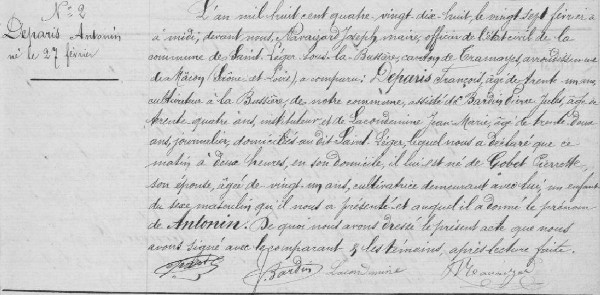 N.º 2
Deparis Antonin
né le 27 février
L'an mil huit cent quatre-vingt-dix-huit, le vingt sept février à
à midi; devant nous Navaizard Joseph maire, officier de l'état civil de la
commune de Saint-Léger sous la Bussière, canton de Tramayes, arrondissement
de Mâcon (Saône et Loire), a comparu: Deparis François, âgé de trente un ans,
cultivateur à la Bussière, de notre commune, assisté de Bardin Pierre Jules, âgé de
trente quatre ans, instituteur et de Lacondemine Jean-Marie, âgé de trente deux
ans, journalier, domiciliés au dit Saint Léger, lequel nous a déclaré que ce
matin à deux heures, en son domicile, il lui est né de Gobet Pierrette
son épouse, âgée de vingt un ans, cultivatrice demeurant avec lui, un enfant
du sexe masculin qu'il nous a présenté et auquel il a donné le prénom
de Antonin. De quoi nous avons dressé le présent acte que nous
avons signé avec le comparant & les témoins, après lecture faite.
J. Bardin Lacondemine